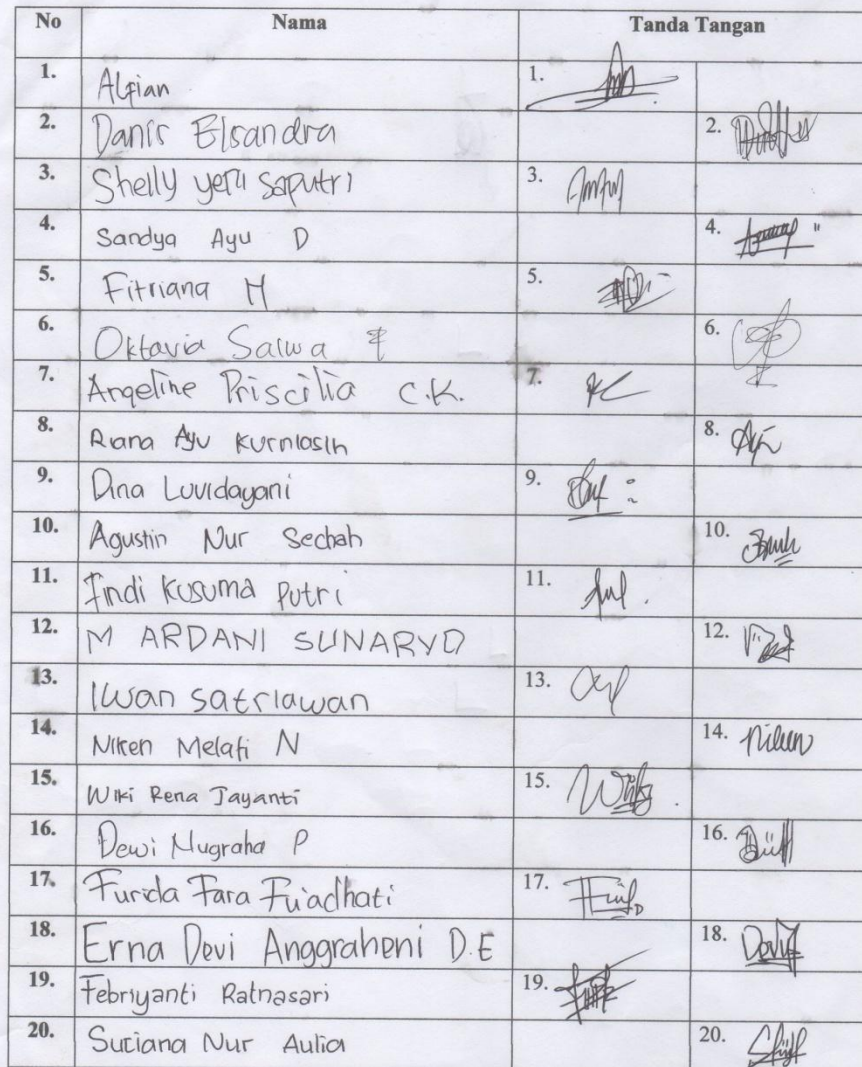 No Nama Tanda Tangan
1. Alfian 1.
2. Danis Elsandra 2.
3. Shelly yeru saputri 3.
4. Sandya Ayu D 4.
5. Fitriana M 5.
6. Oktavia Salwa 6.
7. Angeline Priscilia C.K. 7.
8. Riana Ayu Kurniasih 8.
9. Dina Luvidayani 9.
10. Agustin Nur 10.
11. Indi Kusuma Putri 11.
12. M ARDANI SUNARYO 12.
13. Iwan satriawan 13.
14. Niken Melati N 14. Niken
15. Wiki Rena Jayanti 15.
16. Dewi Nugraha P 16.
17. Furida Fara Fu'adhati 17.
18. Erna Devi Anggraheni D.E 18. Devi
19. Febriyanti Ratnasari 19.
20. Suciana Nur Aulia 20.